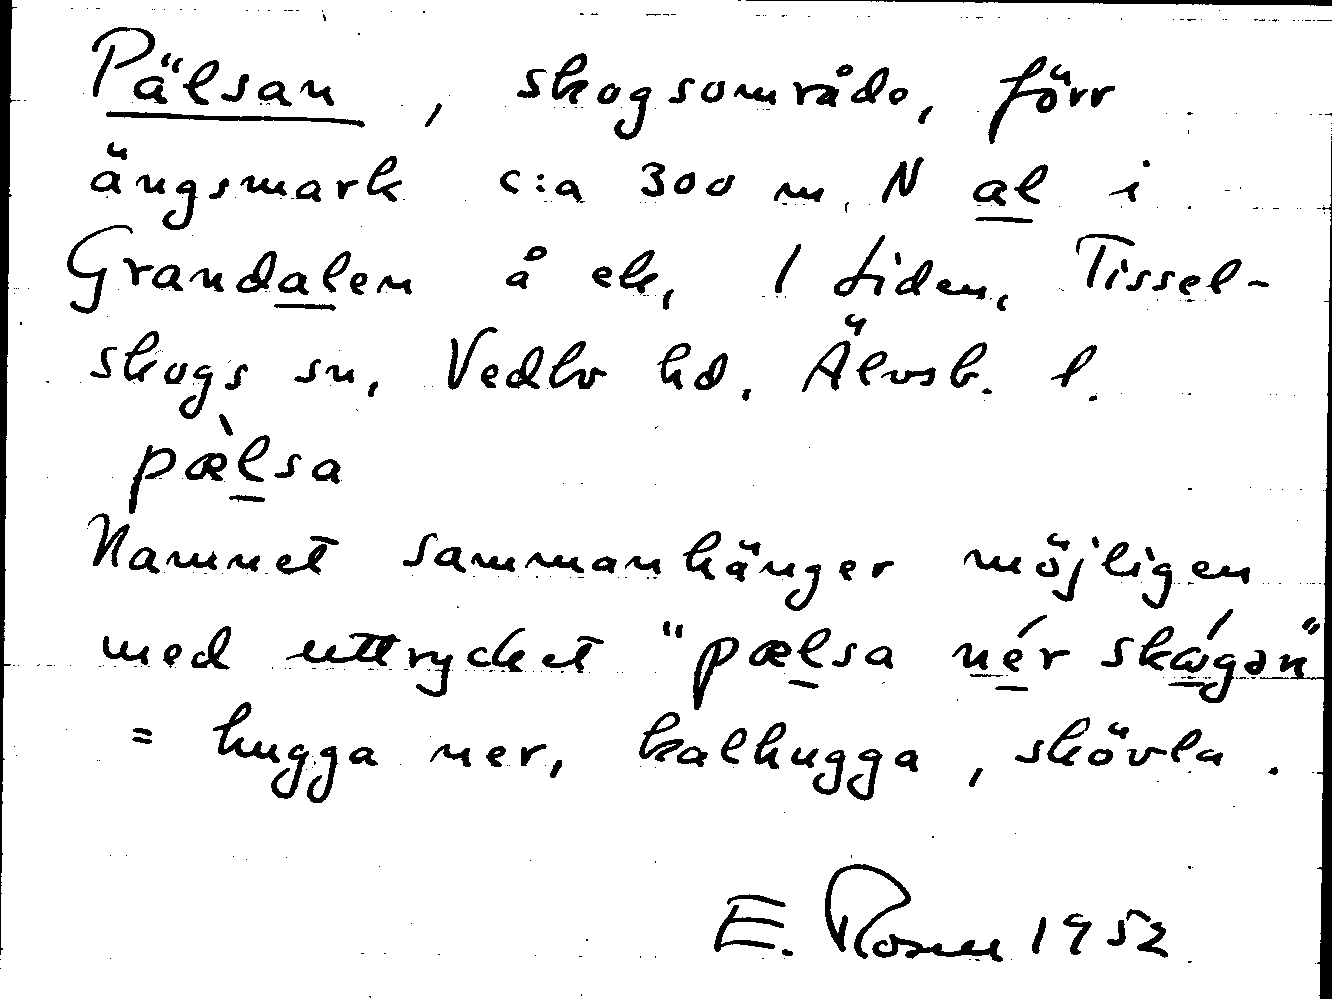 Pälsan, skogsområde, förr
ängsmark c:a 300 m. N al i
Grandalen å ek, 1 Liden, Tissel-
skogs sn, Vedbo hd. Älvsb. l.
pæ̀lsa
Namnet sammanhänger möjligen
med uttrycket "pælsa nér skógən"
= hugga ner, kalhugga, skövla.
E. 1952